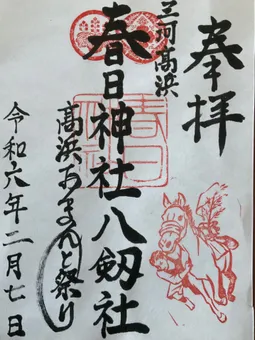 奉拝
三河高浜
春日神社八剱社
春日神社
高浜おまんと祭り
令和六年二月七日